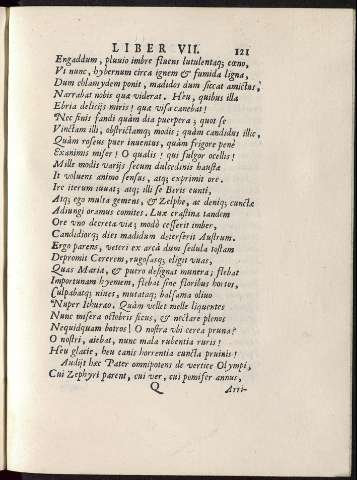 LIBER VII. 121
Engaddum, pluuio imbre fluens lutulentaq; cœno,
Vt nunc, hybernum circa ignem & fumida ligna,
Dum chlamydem ponit, madidos dum siccat amictus,
Narrabat nobis quæ viderat. Heu, quibus illa
Ebria delicijs miris! quæ visa canebat!
Nec finis fandi quàm dia puerpera; quot se
Vinctam illi, obstrictamq; modis; quàm candidus illic,
Quàm roseus puer inuentus, quàm frigore penè
Exanimis miser! O qualis! qui fulgor ocellis!
Mille modis varijs secum dulcedinis haustæ
It voluens animo sensus, atq; exprimit ore.
Ire iterum iuuat; atq; illi se Beris eunti,
Atq; ego multa gemens, & Zelphe, ac deniq; cunctæ
Adiungi oramus comites. Lux crastina tandem
Ore vno decreta viæ; modò cesserit imber,
Candidiorq; dies madidum deterserit Austrum.
Ergo parens, veteri ex arcâ dum sedula tostam
Depromit Cererem, rugosasq; eligit vuas,
Quas Mariæ, & puero designat munera; flebat
Importunam hyemem, flebat sine floribus hortos,
Culpabatq; niues, mutataq; balsama oliuo
Nuper Ithurao. Quàm vellet melle liquentes
Nunc misera octobris ficus, & nectare plenos
Nequidquam botros! O nostra vbi cerea pruna?
O nostri, aiebat, nunc mala rubentia ruris!
Heu glacie, heu canis horrentia cuncta pruinis!
Audijt hæc Pater omnipotens de vertice Olympi,
Cui Zephyri parent, cui ver, cui pomifer annus,
Q Arri-